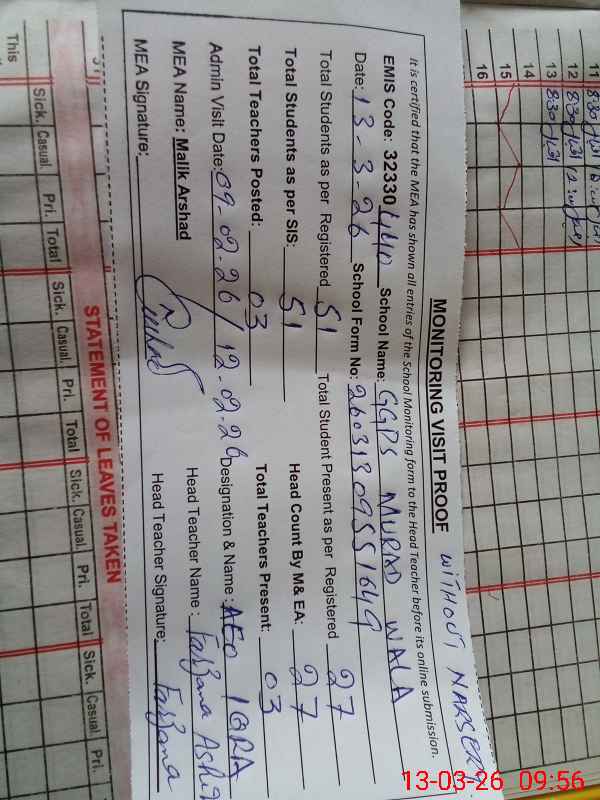 MONITORING VISIT PROOF WITHOUT NARSERY
It is certified that the MEA has shown all entries of the School Monitoring form to the Head Teacher before its online submission.
EMIS Code: 32330440 School Name: GGPS MURAD WALA
Date: 13-3-26 School Form No: 26031309551649
Total Students as per Registered 51 Total Student Present as per Registered 27
Total Students as per SIS: 51 Head Count By M& EA: 27
Total Teachers Posted: 03 Total Teachers Present: 03
Admin Visit Date: 09-02-26/12-02-26 Designation & Name: AEO IQRA
MEA Name: Malik Arshad Head Teacher Name: Farzana Ashi
MEA Signature: Head Teacher Signature: Farzana
STATEMENT OF LEAVES TAKEN
Sick. Casual. Pri. Total Sick. Casual. Pri. Total Sick. Casual. Pri. Total Sick. Casual Pri.
This
11 8:30
12 8:30
13 8:30
14
15
16
13-03-26 09:56